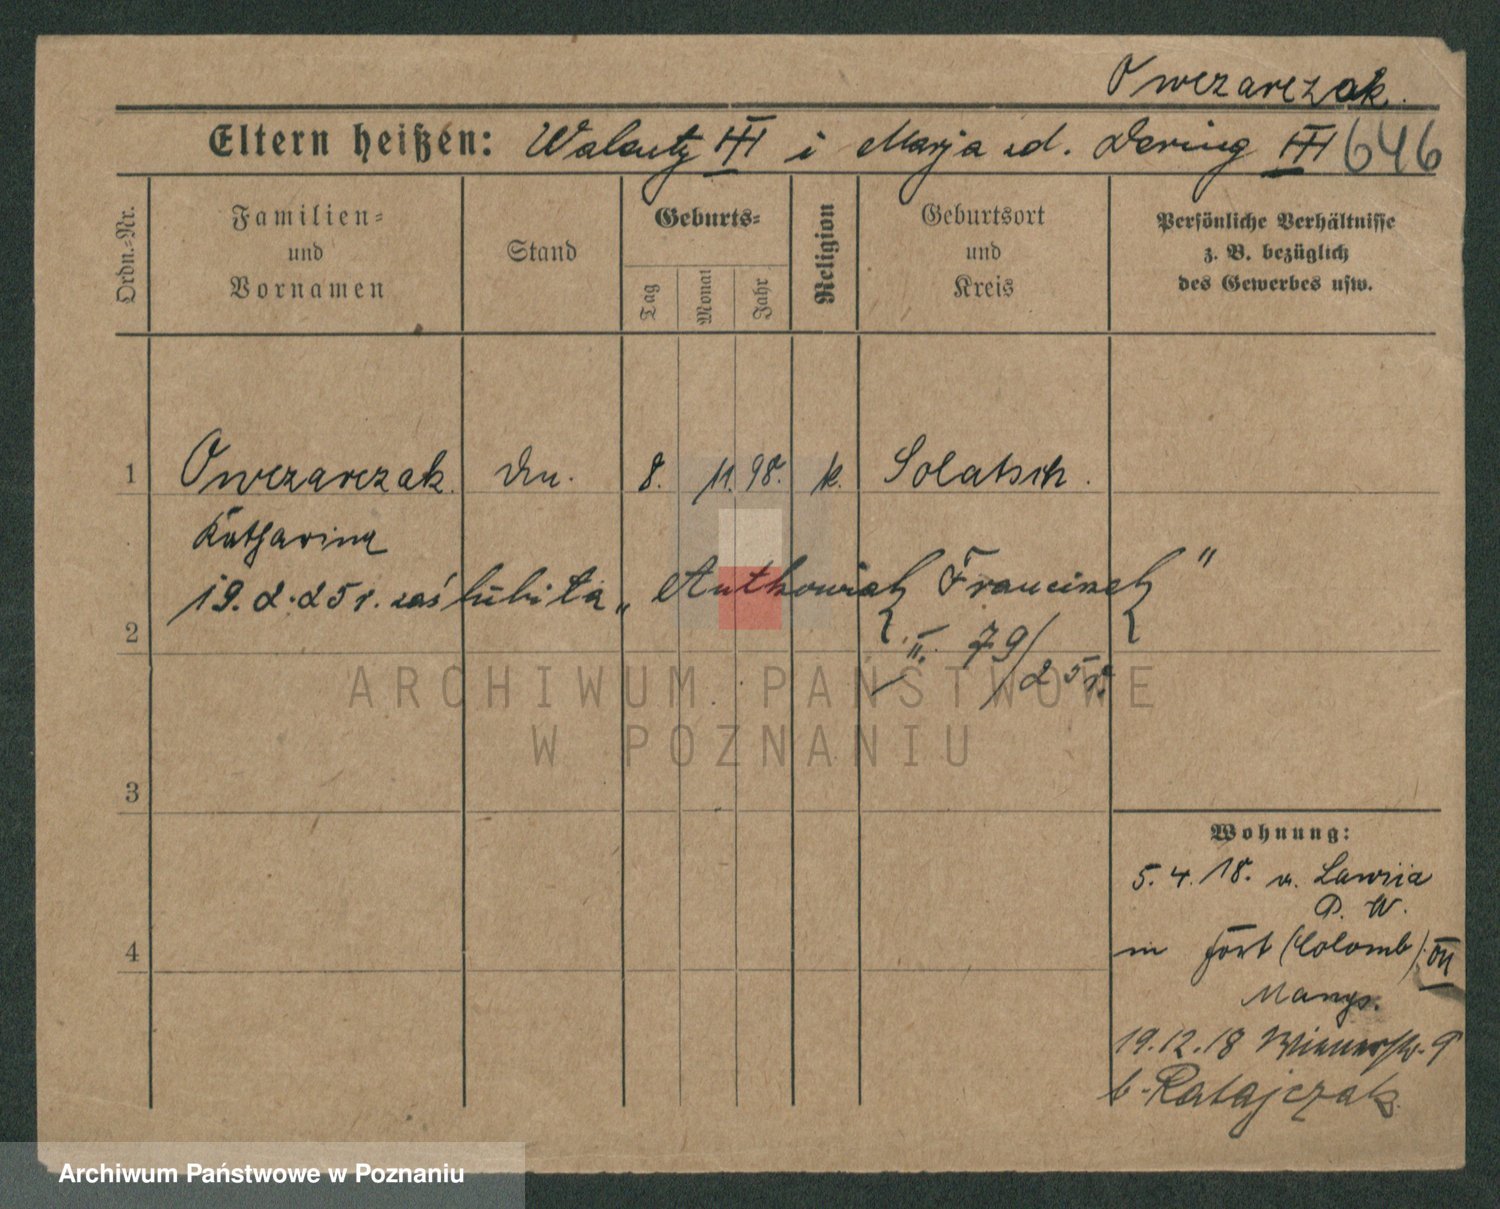 Owczarczak.
Eltern heißen: Walenty III i Marja zd. Dering III 646
Ordn.=Nr.
Familien=
und
Vornamen
Stand
Geburts=
Tag
Monat
Jahr
Religion
Geburtsort
und
Kreis
Persönliche Verhältnisse
z. B. bezüglich
des Gewerbes usw.
1 Owczarczak. 8. 11. 98. k. Solatsch.
Katharina
19.2.25 r. zaślubiła „Antkowiak Franciszek"
2 II. 79/25 r.
3
4
Wohnung:
5. 4. 18. v. Lawica
P. W.
in Fort (Colomb) VII
19.12.18 Wienerstr. 9
b. Ratajczak.
ARCHIWUM PAŃSTWOWE
W POZNANIU
Archiwum Państwowe w Poznaniu